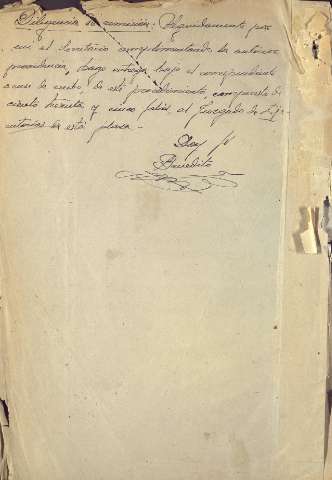 Diligencia de remisión.- Seguidamente por
mi el Secretario cumplimentando la anterior
providencia, hago entrega bajo el correspondiente
acuse de recibo, de este procedimiento compuesto de
ciento treinta y cinco folios, al Juzgado de Eje-
cutorias de esta plaza.-
Doy fé
Benedito